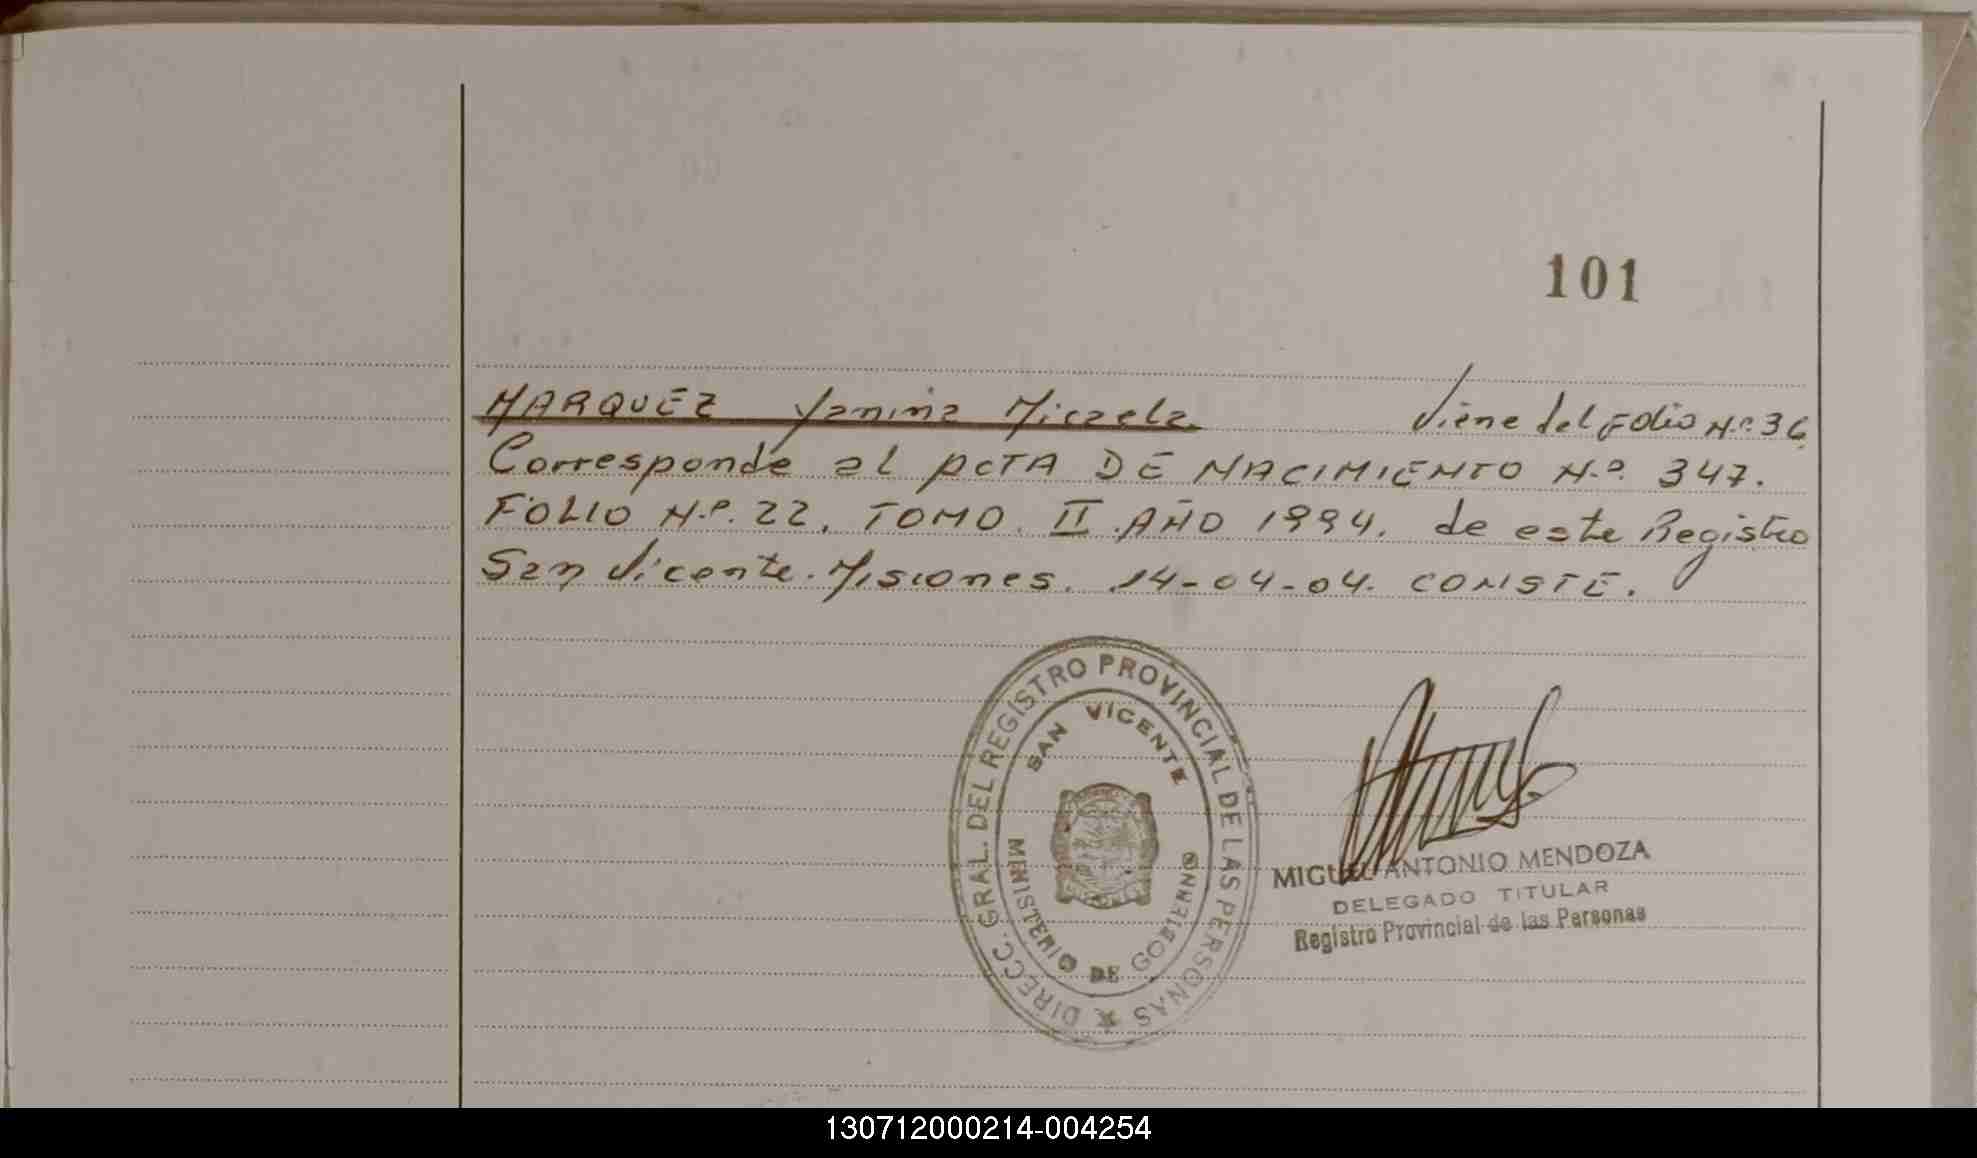 101
MARQUEZ Yanina Micaela Viene del Folio N.º 36
Corresponde al ACTA DE NACIMIENTO N.º 347.
FOLIO N.º 22. TOMO. II. AÑO 1994. de este Registro
San Vicente. Misiones. 14-04-04. CONSTE.
DIRECC. GRAL. DEL REGISTRO PROVINCIAL DE LAS PERSONAS
SAN VICENTE
MINISTERIO DE GOBIERNO
MIGUEL ANTONIO MENDOZA
DELEGADO TITULAR
Registro Provincial de las Personas
130712000214-004254